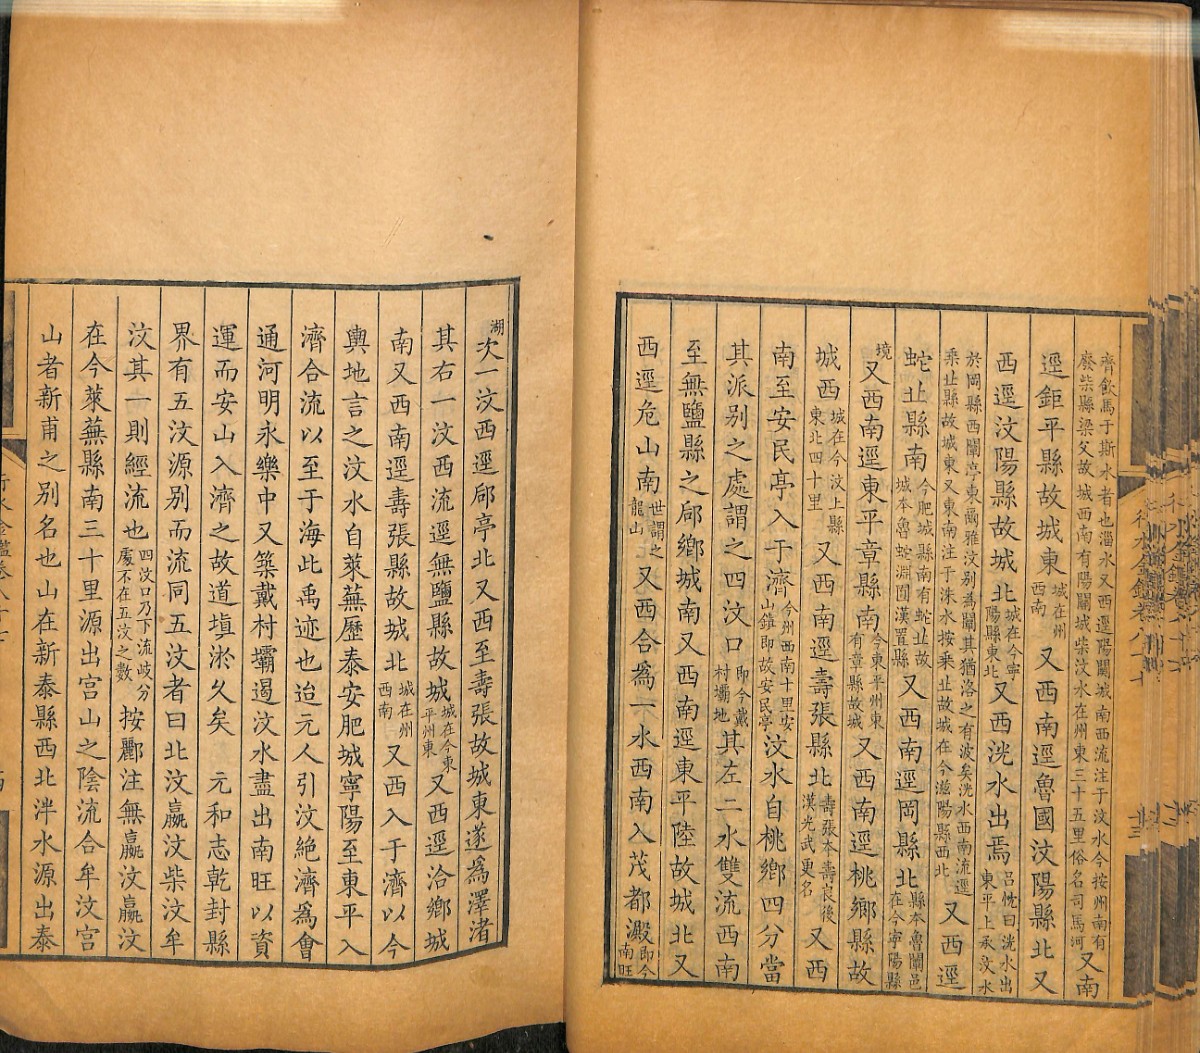 齊飲馬于斯水者也淄水又西逕陽關城南西流注于汶水今按州南有
廢柴縣梁父故城西南有陽關城柴汶水在州東三十五里俗名司馬河又南
逕鉅平縣故城東城在州西南又西南逕魯國汶陽縣北又
西逕汶陽縣故城北城在今寧陽縣東北又西洸水出焉呂忱曰洸水出東平上承汶水
於岡縣西闡亭東爾雅汶別為闡其猶洛之有波矣洸水西南流逕
乘丘縣故城東又東南注于洙水按乘丘故城在今滋陽縣西北又西逕
蛇丘縣南今肥城縣南有蛇丘故城本魯蛇淵囿漢置縣又西南逕岡縣北縣本魯闡邑在今寧陽縣
境又西南逕東平章縣南今東平州東有章縣故城又西南逕桃鄉縣故
城西城在今汶上縣東北四十里又西南逕壽張縣北壽張本壽良後漢光武更名又西
南至安民亭入于濟今州西南十里安山鎮即故安民亭汶水自桃鄉四分當
其派别之處謂之四汶口即今戴村壩地其左二水雙流西南
至無鹽縣之郈鄉城南又西南逕東平陸故城北又
西逕危山南世謂之龍山又西合爲一水西南入茂都澱即今南旺
湖次一汶西逕郈亭北又西至壽張故城東遂爲澤渚
其右一汶西流逕無鹽縣故城城在今東平州東又西逕洽鄉城
南又西南逕壽張縣故城北城在州西南又西入于濟以今
輿地言之汶水自萊蕪歷泰安肥城寧陽至東平入
濟合流以至于海此禹迹也迨元人引汶絶濟爲會
通河明永樂中又築戴村壩遏汶水盡出南旺以資
運而安山入濟之故道塡淤久矣 元和志乾封縣
界有五汶源别而流同五汶者曰北汶嬴汶柴汶牟
汶其一則經流也四汶口乃下流岐分處不在五汶之數按酈注無嬴汶嬴汶
在今萊蕪縣南三十里源出宫山之陰流合牟汶宫
山者新甫之别名也山在新泰縣西北泮水源出泰
行水金鑑卷八十七